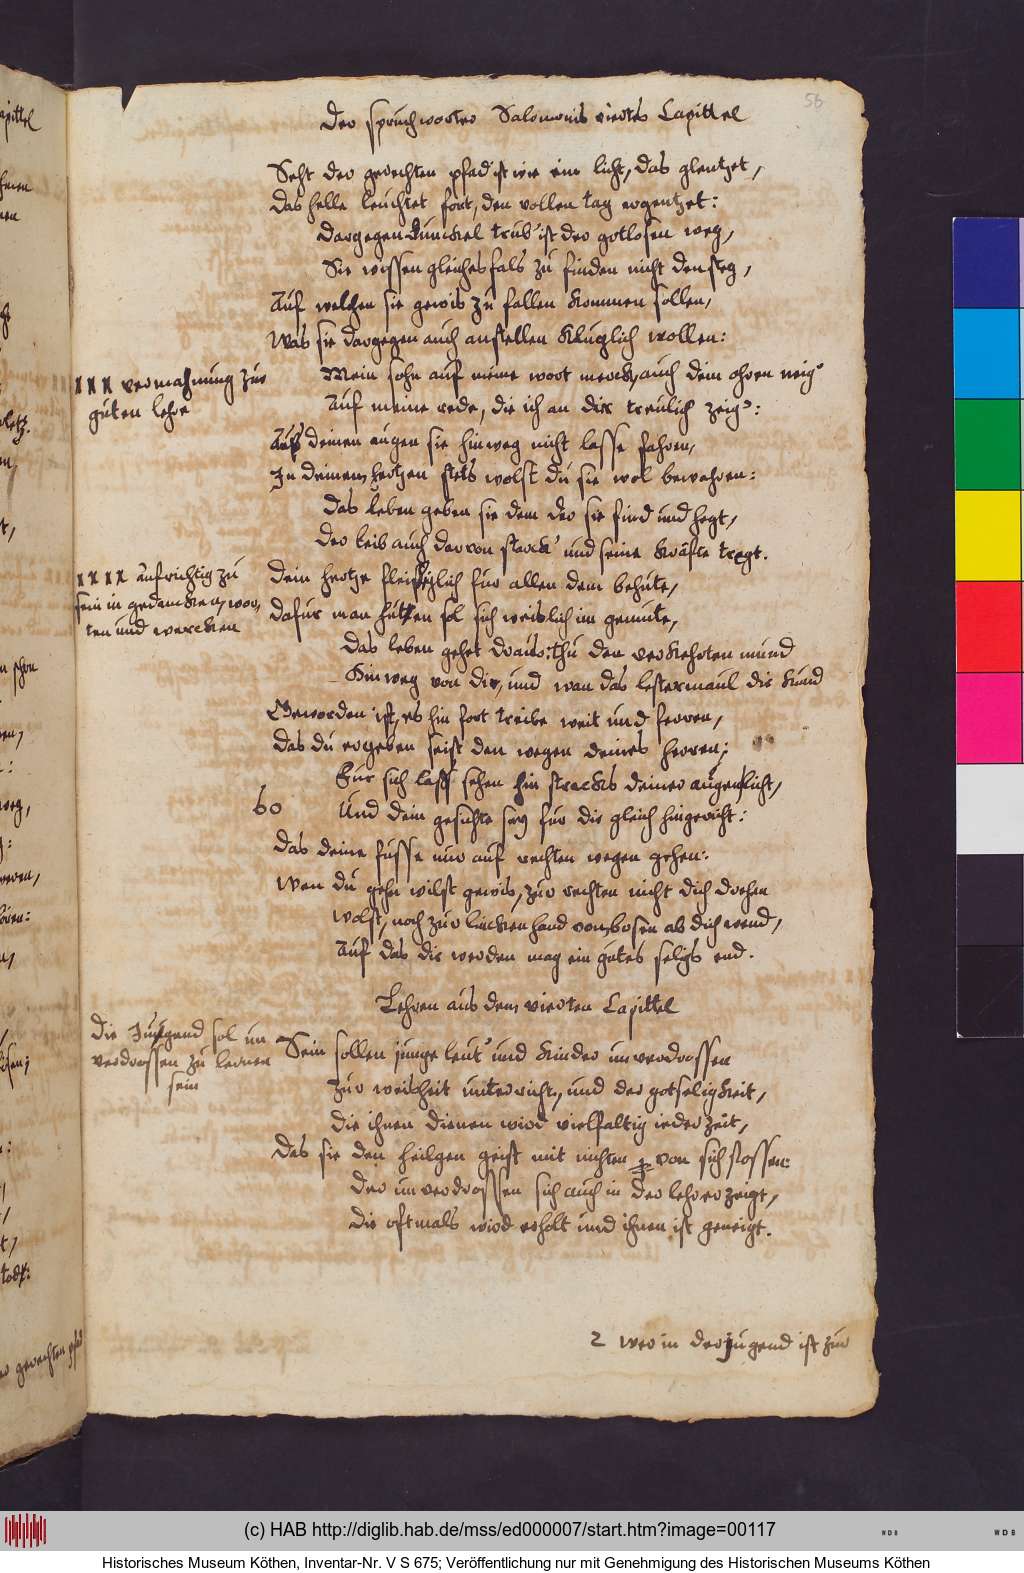 56
Der spruchworter Salomonis viertes Capittel
Seht der gerechten pfad ist wie ein licht, das glentzet,
Das helle leuchtet fort, den vollen tag ergentzet:
Dargegen dunckel trub' ist der gotlosen weg,
Sie wissen gleichesfals zu finden nicht den steg,
Auf welchen sie gewis zu fallen kommen sollen,
Was sie dargegen auch anstellen kluglich wollen:
ххх vermahnung zur
guten lehre
Mein sohn auf meine wort merck, auch dein ohren neig'
Auf meine rede, die ich an dir treulich zeig':
Aus deinen augen sie hinweg nicht lasse fahren,
In deinem hertzen stets wolst du sie wol bewahren:
Das leben geben sie dem der sie find und hegt,
Der leib auch dervon starck' und seine kräfte tregt.
хххх aufrichtig zu
sein in gedancken, wor,
ten und wercken
Dein hertze fleissiglich fur allen dem behute,
Dafur man huten sol sich weislich im gemute,
Das leben gehet draus: thu den verkehrten mund
Hinweg von dir, und wan das lestermaul dir kund
Geworden ist, es hin fort treibe weit und ferren,
Das du ergeben seist den wegen deines herren;
Fur sich lass sehen hin stracks deiner augen licht,
60
Und dein gesichte sey fur dir gleich hingericht:
Das deine fusse nur auf rechten wegen gehen:
Wan du gehn wilst gewis, zur rechten nicht dich drehen
Wolst, noch zur lincken hand vom bosen ab dich wend,
Auf das dir werden mag ein gutes seligs end.
Lehren aus dem vierten Capittel
Die Jugend sol un
verdrossen zu lernen
sein
Sein sollen junge leut' und kinder unverdrossen
Zur weisheit unterricht, und der gotseligkeit,
Die ihnen dienen wird vielfaltig ieder zeit,
Das sie den heilgen geist mit nichten von sich stossen:
Der unverdrossen sich auch in der lehr erzeigt,
Die oftmals wird erholt und ihnen ist geneigt.
2 Wer in der jugend ist zur
(c) HAB http://diglib.hab.de/mss/ed000007/start.htm?image=00117
Historisches Museum Köthen, Inventar-Nr. V S 675; Veröffentlichung nur mit Genehmigung des Historischen Museums Köthen